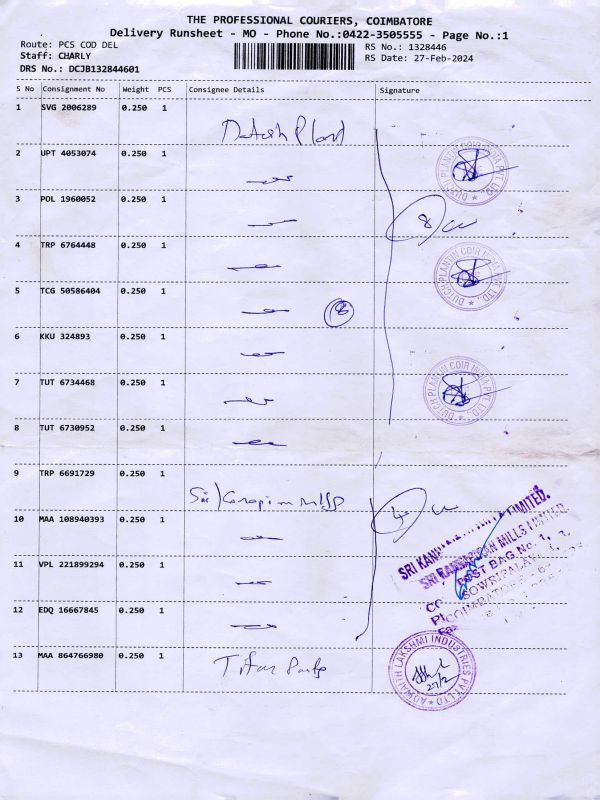 THE PROFESSIONAL COURIERS, COIMBATORE
Delivery Runsheet - MO - Phone No.:0422-3505555 - Page No.:1
Route: PCS COD DEL
RS No.: 1328446
Staff: CHARLY
RS Date: 27-Feb-2024
DRS No.: DCJB132844601
S No Consignment No Weight PCS Consignee Details Signature
1 SVG 2006289 0.250 1
2 UPT 4053074 0.250 1
3 POL 1960052 0.250 1
8
4 TRP 6764448 0.250 1
5 TCG 50586404 0.250 1
8
6 KKU 324893 0.250 1
7 TUT 6734468 0.250 1
8 TUT 6730952 0.250 1
9 TRP 6691729 0.250 1
Sri
10 MAA 108940393 0.250 1
4
11 VPL 221899294 0.250 1
12 EDQ 16667845 0.250 1
13 MAA 864766980 0.250 1
DUTCH PLANTIN COIR INDIA PVT. LTD.,
DUTCH PLANTIN COIR INDIA PVT. LTD.,
DUTCH PLANTIN COIR INDIA PVT. LTD.,
SRI LIMITED.
SRI MILLS LIMITED,
POST BAG No. 1,
ADWAITH LAKSHMI INDUSTRIES PVT LTD
27/2